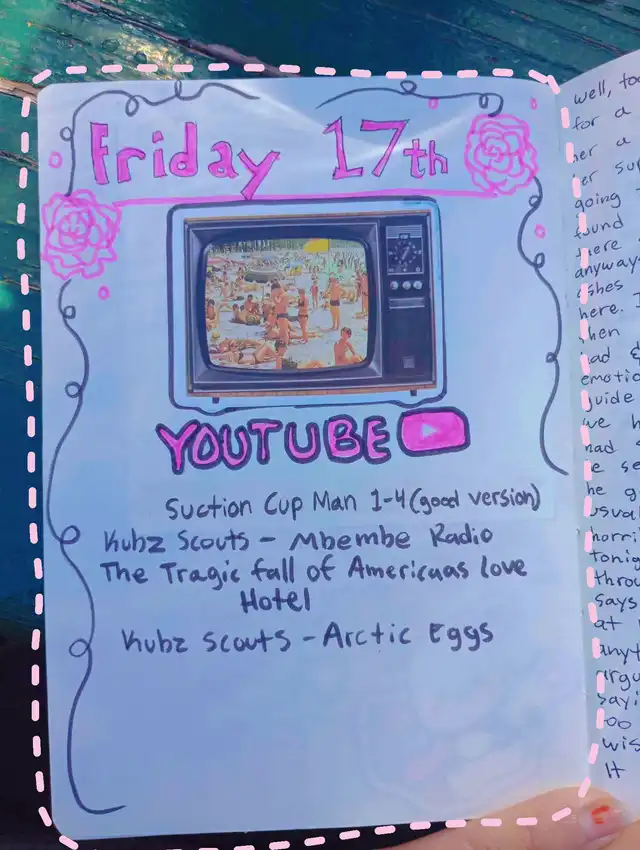 Friday 17th
YOUTUBE
Suction Cup Man 1-4 (good version)
Kubz Scouts - Mbembe Radio
The Tragic fall of Americuas love
Hotel
Kubz Scouts - Arctic Eggs
well, too
for a
her a
er sup
going
found
here
anyway
shes
here. T
then
had
emotio
guide
we h
had
e se
he g
usual
horri
tonig
throu
Says
at
anyt
argu
say,
too
wis
It